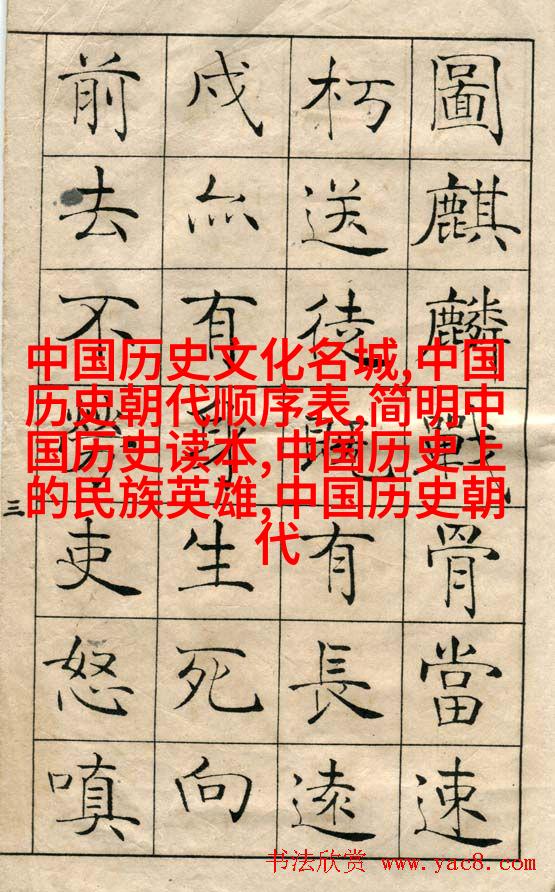 圖麒麟戰骨當速
朽送徒既有長遠
戍亦有身生死向
前去不勞吏怒嗔
三
中国历史文化名城,中国
历史朝代顺序表,简明中
国历史读本,中国历史上
的民族英雄,中国历史朝
代
书法欣赏 www.yac8.com